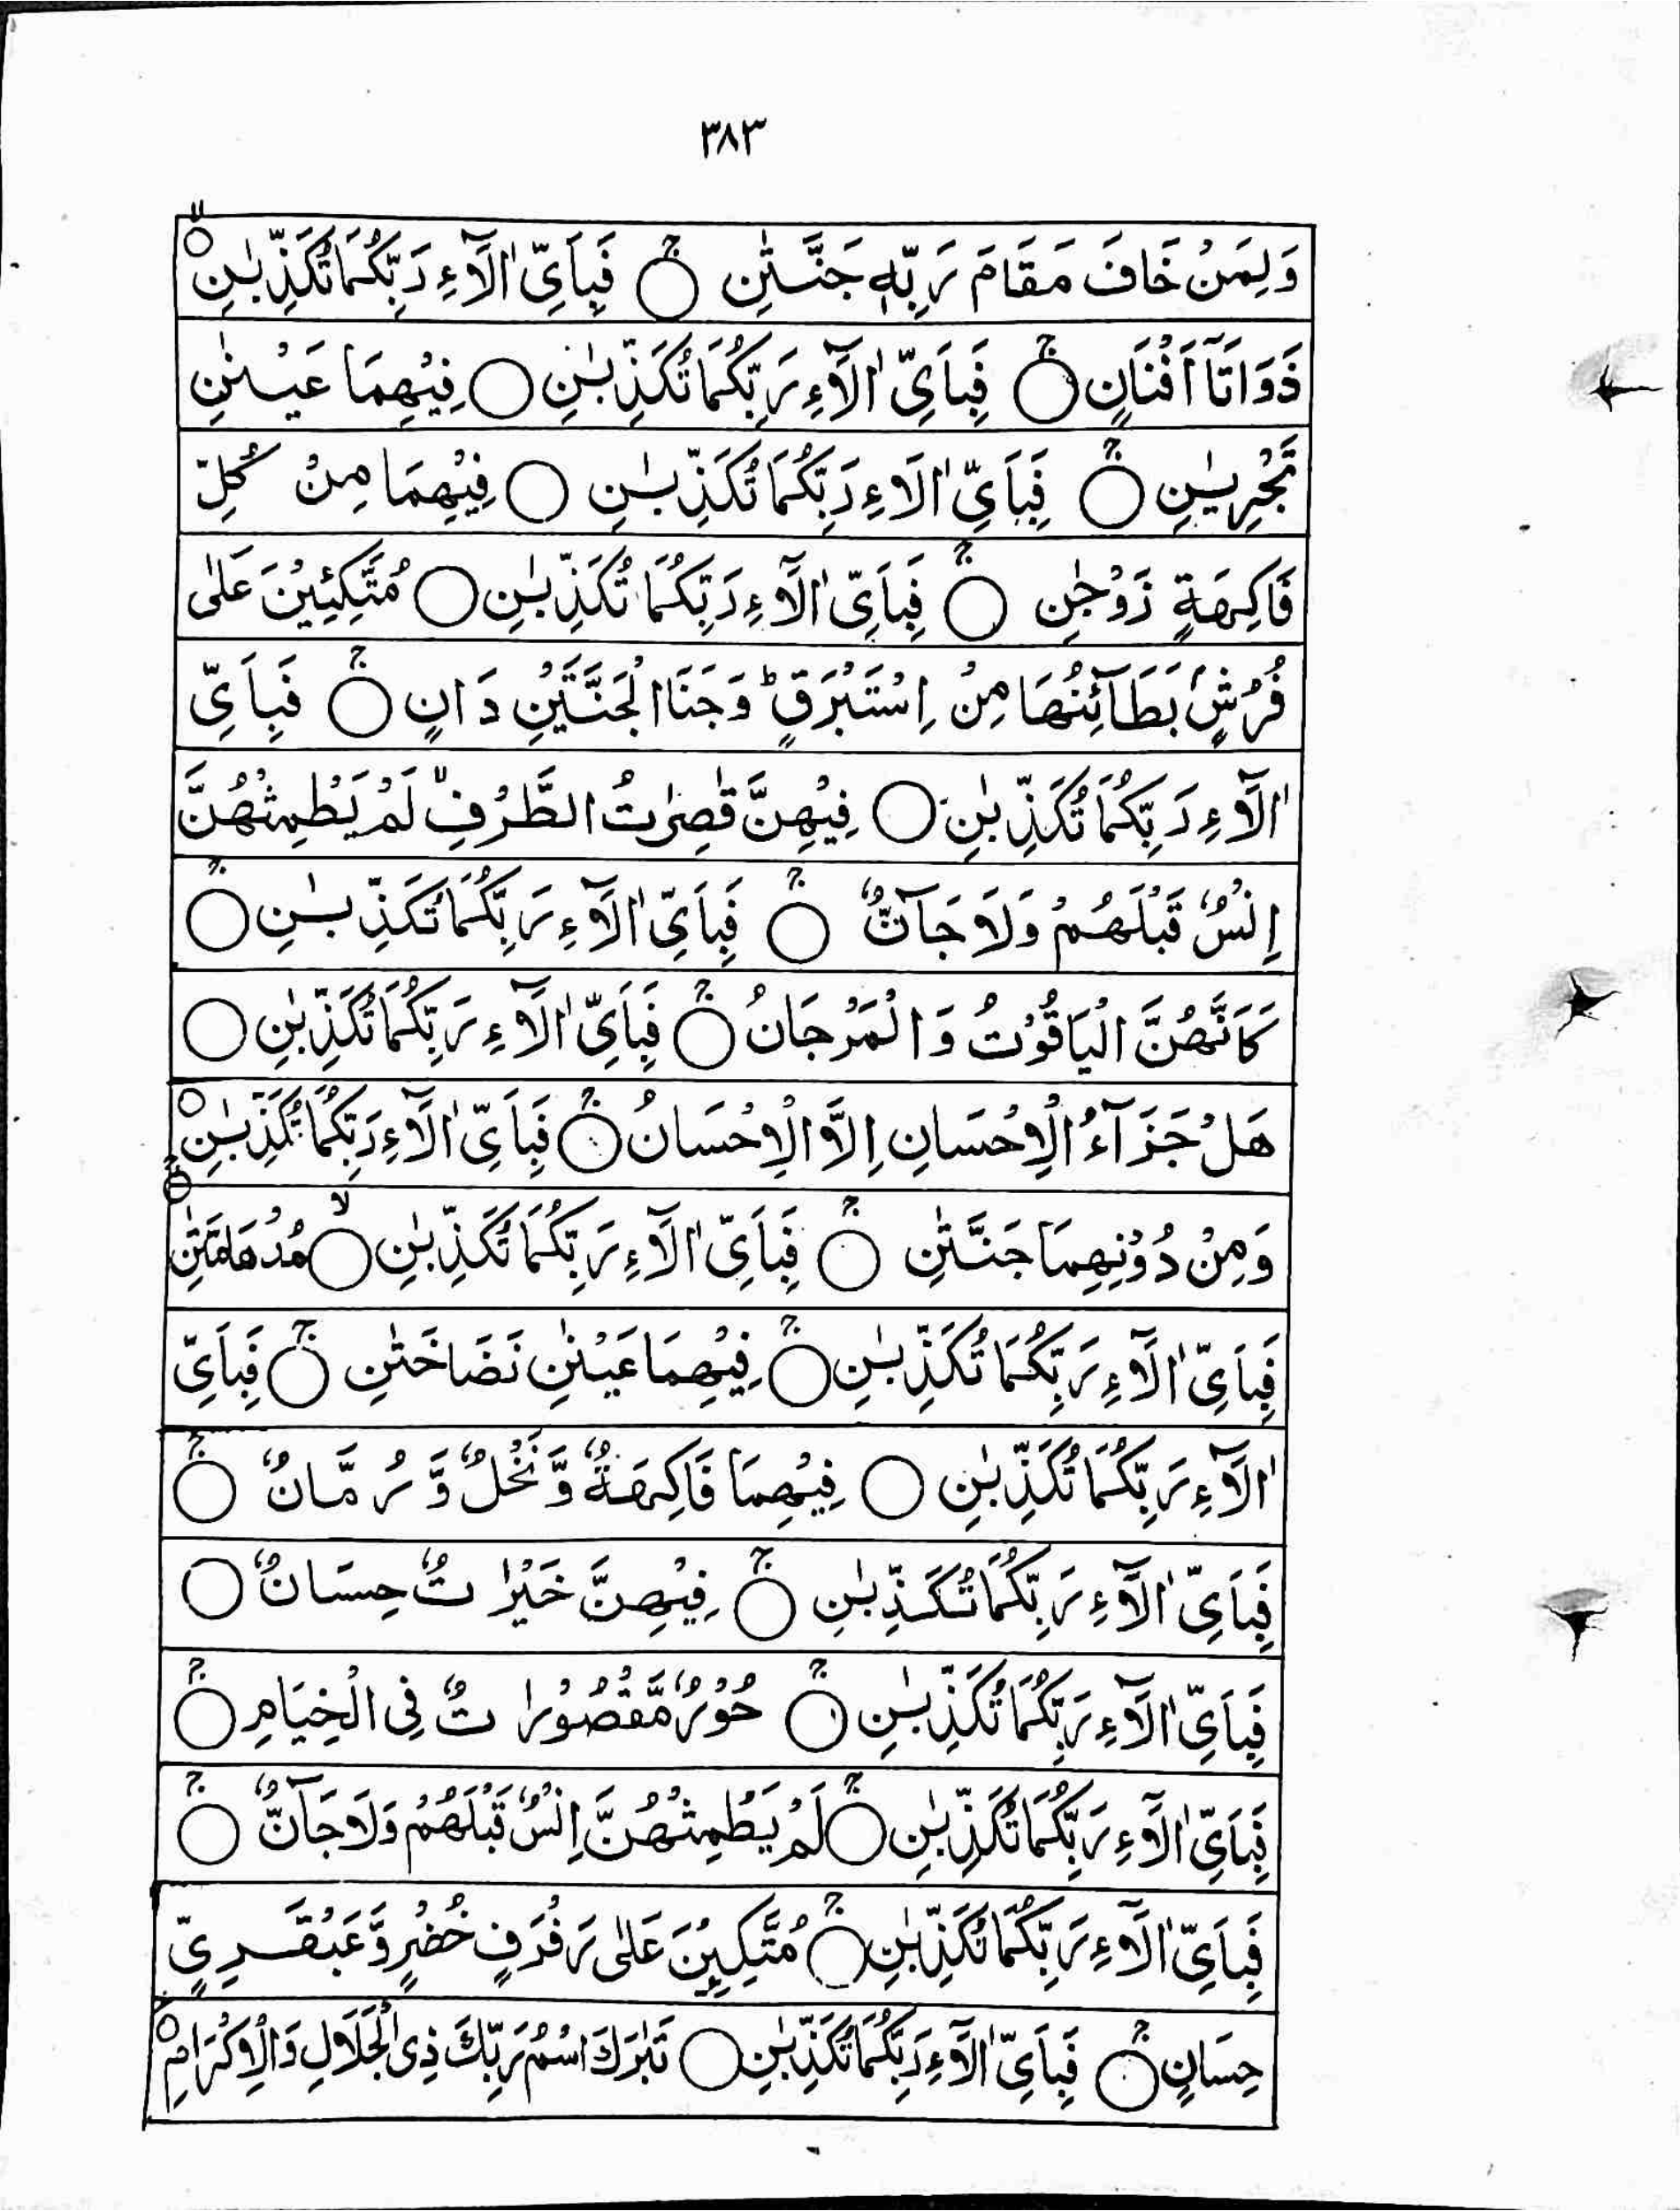 ٣٨٣
وَلِمَنْ خَافَ مَقَامَ رَبِّهٖ جَنَّتٰنِ ۚ○ فَبِاَيِّ اٰلَآءِ رَبِّكُمَا تُكَذِّبٰنِ ۙ○
ذَوَاتَاۤ اَفْنَانٍ ۚ○ فَبِاَيِّ اٰلَآءِ رَبِّكُمَا تُكَذِّبٰنِ ○ فِيْهِمَا عَيْنٰنِ
تَجْرِيٰنِ ۚ○ فَبِاَيِّ اٰلَاءِ رَبِّكُمَا تُكَذِّبٰنِ ○ فِيْهِمَا مِنْ كُلِّ
فَاكِهَةٍ زَوْجٰنِ ۚ○ فَبِاَيِّ اٰلَآءِ رَبِّكُمَا تُكَذِّبٰنِ ○ مُتَّكِئِيْنَ عَلٰى
فُرُشٍۭ بَطَآئِنُهَا مِنْ اِسْتَبْرَقٍ ؕ وَجَنَا الْجَنَّتَيْنِ دَانٍ ۚ○ فَبِاَيِّ
اٰلَآءِ رَبِّكُمَا تُكَذِّبٰنِ ○ فِيْهِنَّ قٰصِرٰتُ الطَّرْفِ ۙ لَمْ يَطْمِثْهُنَّ
اِنْسٌ قَبْلَهُمْ وَلَا جَآنٌّ ۚ○ فَبِاَيِّ اٰلَآءِ رَبِّكُمَا تُكَذِّبٰنِ ۚ○
كَاَنَّهُنَّ الْيَاقُوْتُ وَالْمَرْجَانُ ۚ○ فَبِاَيِّ اٰلَآءِ رَبِّكُمَا تُكَذِّبٰنِ ○
هَلْ جَزَآءُ الْاِحْسَانِ اِلَّا الْاِحْسَانُ ۚ○ فَبِاَيِّ اٰلَآءِ رَبِّكُمَا تُكَذِّبٰنِ ○
وَمِنْ دُوْنِهِمَا جَنَّتٰنِ ۚ○ فَبِاَيِّ اٰلَآءِ رَبِّكُمَا تُكَذِّبٰنِ ۙ○ مُدْهَامَّتٰنِ ۚ○
فَبِاَيِّ اٰلَآءِ رَبِّكُمَا تُكَذِّبٰنِ ۚ○ فِيْهِمَا عَيْنٰنِ نَضَاخَتٰنِ ۚ○ فَبِاَيِّ
اٰلَآءِ رَبِّكُمَا تُكَذِّبٰنِ ○ فِيْهِمَا فَاكِهَةٌ وَّنَخْلٌ وَّرُمَّانٌ ۚ○
فَبِاَيِّ اٰلَآءِ رَبِّكُمَا تُكَذِّبٰنِ ۚ○ فِيْهِنَّ خَيْرٰتٌ حِسَانٌ ○
فَبِاَيِّ اٰلَآءِ رَبِّكُمَا تُكَذِّبٰنِ ۚ○ حُوْرٌ مَّقْصُوْرٰتٌ فِى الْخِيَامِ ۚ○
فَبِاَيِّ اٰلَآءِ رَبِّكُمَا تُكَذِّبٰنِ ۚ○ لَمْ يَطْمِثْهُنَّ اِنْسٌ قَبْلَهُمْ وَلَا جَآنٌّ ۚ○
فَبِاَيِّ اٰلَآءِ رَبِّكُمَا تُكَذِّبٰنِ ۚ○ مُتَّكِـِٕيْنَ عَلٰى رَفْرَفٍ خُضْرٍ وَّعَبْقَرِيٍّ
حِسَانٍ ۚ○ فَبِاَيِّ اٰلَآءِ رَبِّكُمَا تُكَذِّبٰنِ ○ تَبٰرَكَ اسْمُ رَبِّكَ ذِى الْجَلَالِ وَالْاِكْرَامِ ○